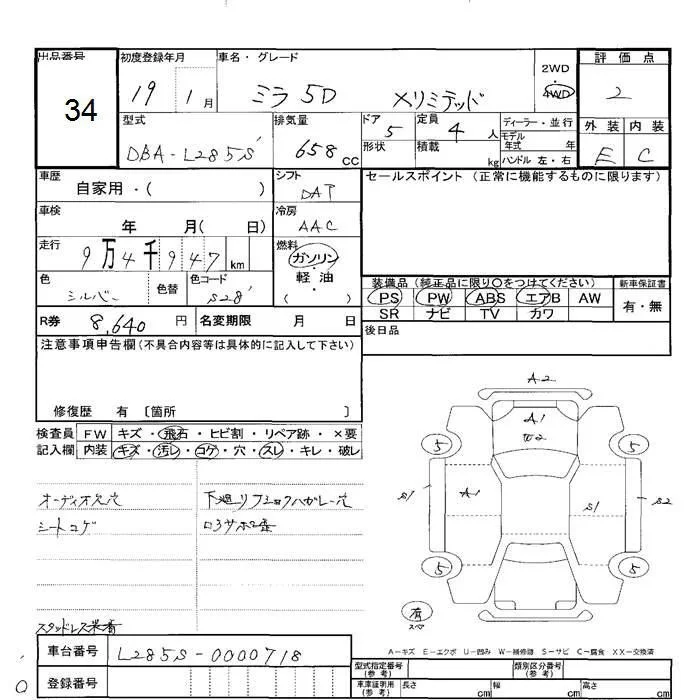 出品番号
34
初度登録年月
19 1 月
車名・グレード
ミラ 5D メリミテッド
2WD
・
4WD
評 価 点
2
外 装 内 装
E C
型式
DBA-L285S
排気量
658 CC
ドア 5
形状
定員 4 人
積載 kg
ディーラー・並行
モデル
年式 年
ハンドル 左・右
車歴
自家用・( )
シフト
DAT
セールスポイント (正常に機能するものに限ります)
車検
年 月( 日)
冷房
AAC
走行
9 万 4 千 9 4 7 km
燃料
ガソリン
・
軽・油
( )
色
シルバー
色替
色コード
S28
装備品 (純正品に限り○をつけてください)
PS PW ABS エアB AW
SR ナビ TV カワ
新車保証書
有・無
R券 8,640 円
名変期限 月 日
後日品
注意事項申告欄(不具合内容等は具体的に記入して下さい)
修復歴 有 〔箇所 〕
検査員 FW キズ・飛石・ヒビ割・リペア跡・×要
記入欄 内装 キズ・汚レ・コゲ・穴・スレ・キレ・破レ
オーディオ欠穴
シートコゲ
スタッドレス
A2
A1
U2
5 5
S1 A1 S1 S2
5 5
有
スペア
A-キズ E-エクボ U-凹み W-補修跡 S-サビ C-腐食 XX-交換済
車台番号 L285S-0000718
登録番号
型式指定番号
(参考)
類別区分番号
(参考)
車庫証明用
(参考)
長さ cm 幅 cm 高さ cm